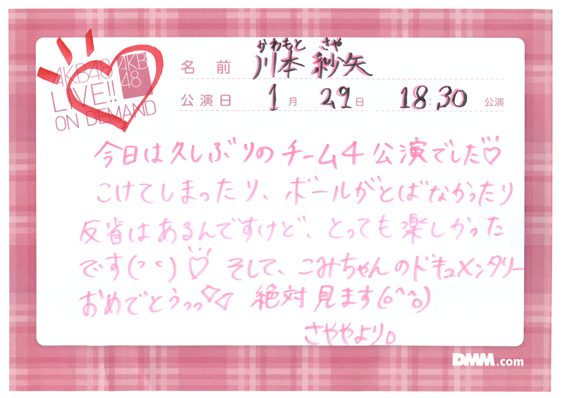 AKB48 AKB48
LIVE!!
ON DEMAND
かわもと さや
名前 川本 紗矢
公演日 1月 29日 18:30 公演
今日は久しぶりのチーム4公演でした♡
こけてしまったり、ボールがとばなかったり
反省はあるんですけど、とっても楽しかった
です( ᵔ ᵔ )♡ そして、こみちゃんのドキュメンタリー
おめでとうっっ 絶対見ます(o^^o)
さややより。
DMM.com